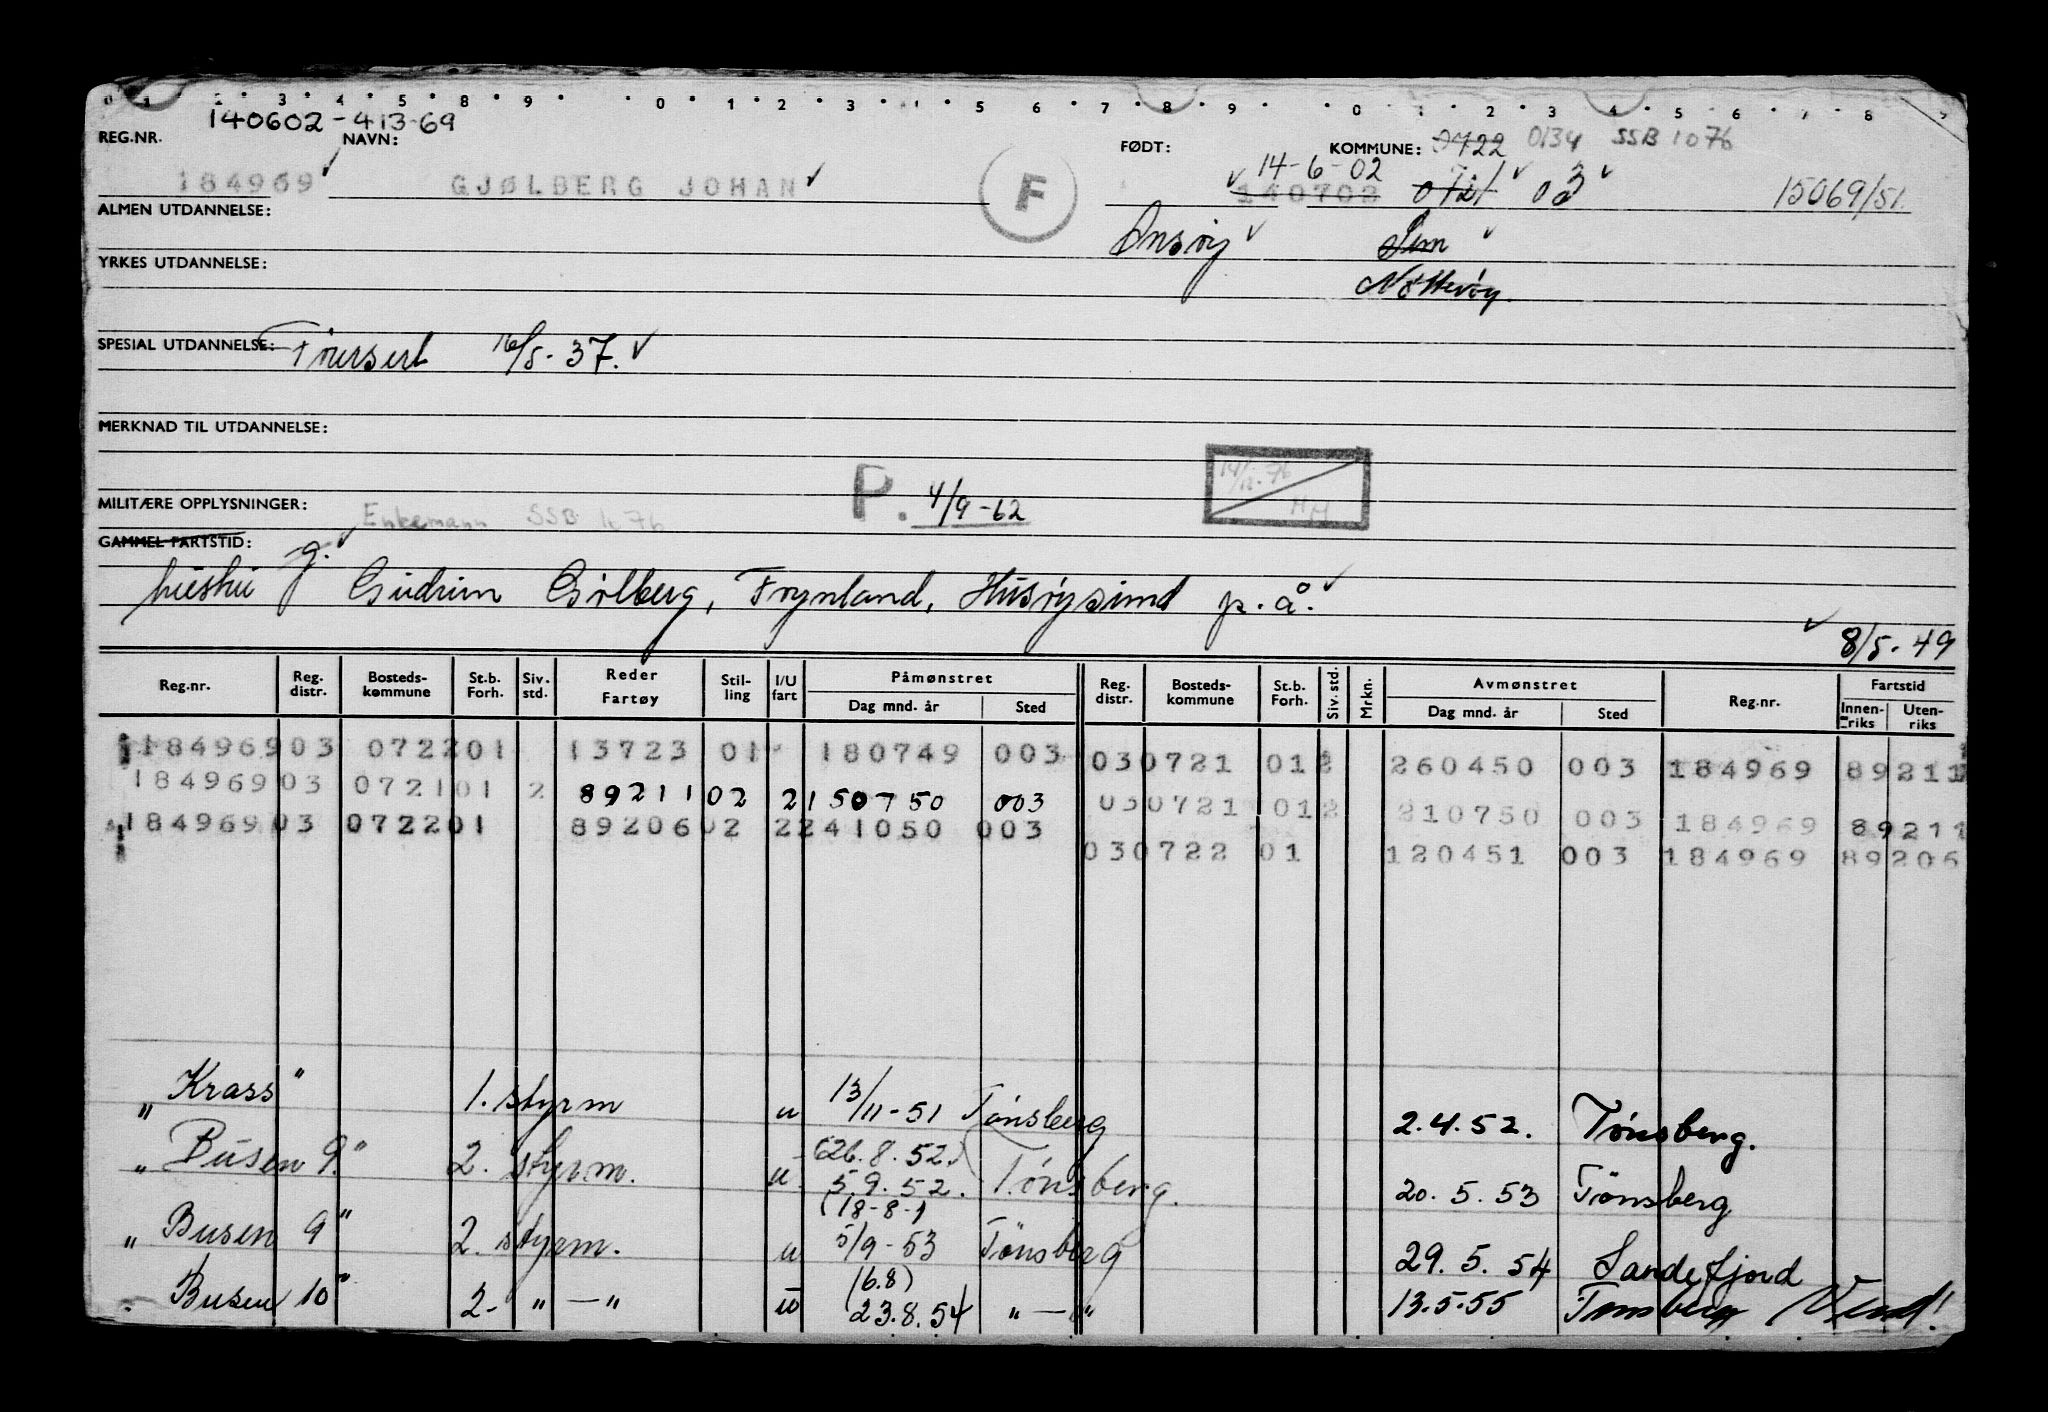 0 1 2 3 4 5 8 9 0 1 2 3 5 6 7 8 9 0 1 2 3 4 5 6 7 8 9
140602-413-69
REG.NR. NAVN: FØDT: KOMMUNE: 0722 0134 SSB 1076
14-6-02
184969 GJØLBERG JOHAN F 140702 0721 03 15069/51
ALMEN UTDANNELSE: Onsøy Sem
YRKES UTDANNELSE: Nøtterøy.
SPESIAL UTDANNELSE: 16/5-37.
MERKNAD TIL UTDANNELSE:
14/12-76 HH
MILITÆRE OPPLYSNINGER: P. 4/9-62
Enkemann SSB
GAMMEL FARTSTID: g.
hustru Gudrun Gjølberg, Frynland, Husøysund p.å.
8/5-49
Reg.nr. Reg. distr. Bosteds-kommune St.b. Forh. Siv. std. Reder Fartøy Stil-ling I/U fart Påmønstret Dag mnd. år Sted Reg. distr. Bosteds-kommune St.b. Forh. Siv. std. Mrkn. Avmønstret Dag mnd. år Sted Reg.nr. Fartstid Innen-riks Uten-riks
184969 03 0722 01 13723 01 180749 003 03 0721 01 2 260450 003 184969 89211
184969 03 0721 01 2 89211 02 2 150750 003 03 0721 01 2 210750 003 184969 89211
184969 03 0722 01 89206 02 2 241050 003
03 0722 01 120451 003 184969 89206
„Krass" 1. styrm u 13/11-51 Tønsberg 2.4.52. Tønsberg.
(26.8.52.)
„Busen 9." 2. styrm. u 5.9.52. Tønsberg. 20.5.53 Tønsberg
(18-8-)
„Busen 9" 2. styrm. u 5/9-53 Tønsberg 29.5.54 Sandefjord
(6.8)
„Busen 10" 2- " — " u 23.8.54 " — " 13.5.55 Tønsberg Vend!